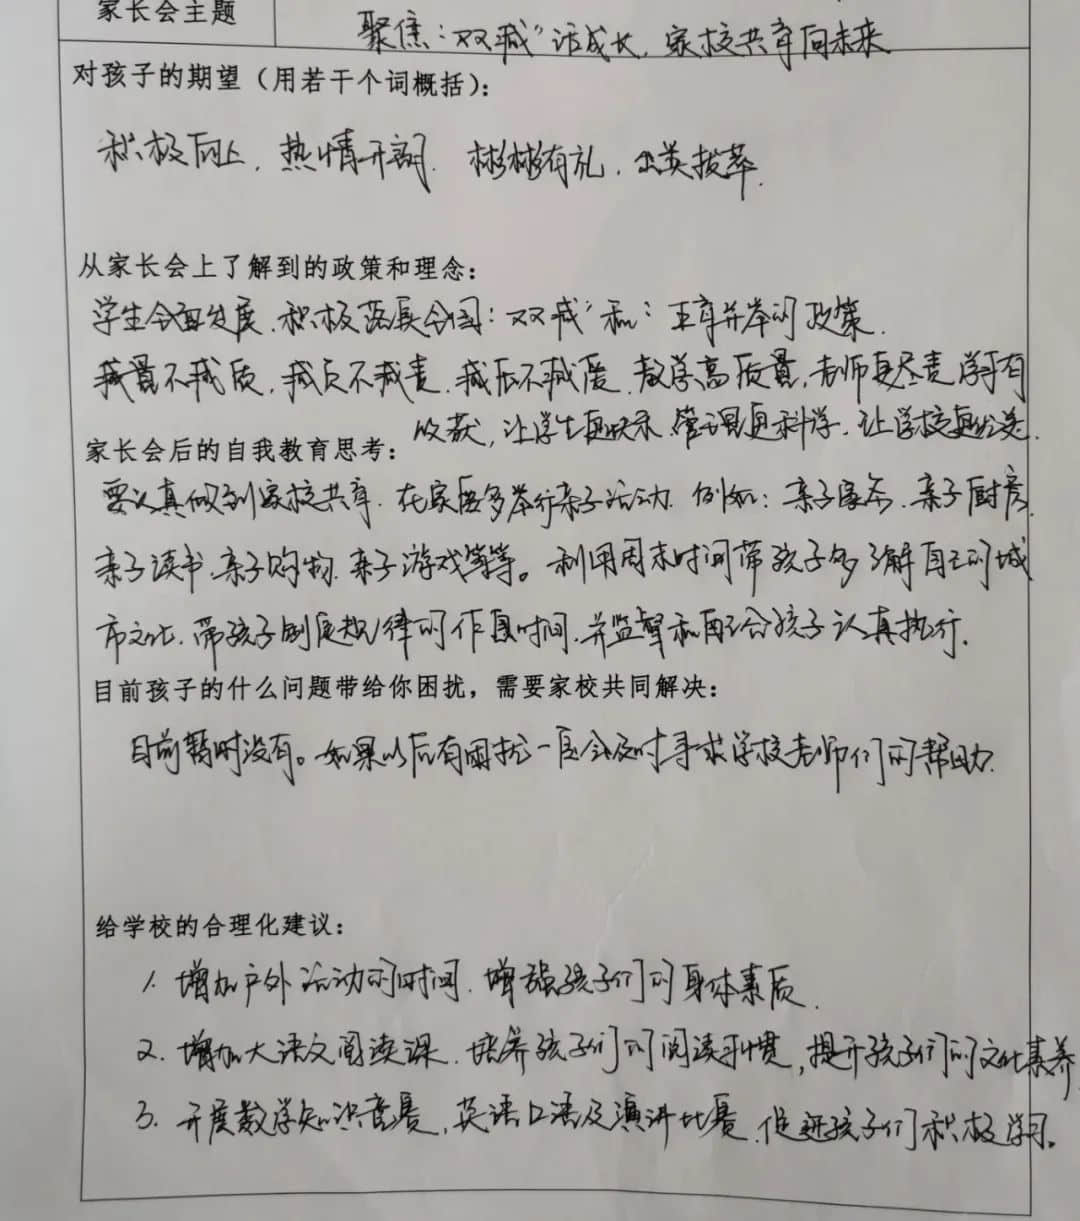 家长会主题
聚焦“双减”话成长,家校共育向未来
对孩子的期望(用若干个词概括):
积极向上,热情开朗,彬彬有礼,出类拔萃.
从家长会上了解到的政策和理念:
学生全面发展,积极落实全国“双减”和“五育并举”的政策.
减量不减质,减负不减责,减压不减度,教学高质量,老师更尽责,学子有
收获,让学生更快乐,管理更科学,让学校更优美.
家长会后的自我教育思考:
要认真做到家校共育,在家庭多举行亲子活动,例如:亲子家务,亲子厨房,
亲子读书,亲子购物,亲子游戏等等。利用周末时间带孩子多了解自己的城
市文化,带孩子制定规律的作息时间,并监督和配合孩子认真执行.
目前孩子的什么问题带给你困扰,需要家校共同解决:
目前暂时没有。如果以后有困扰一定会及时寻求学校老师们的帮助.
给学校的合理化建议:
1. 增加户外活动的时间,增强孩子们的身体素质.
2. 增加大语文阅读课,培养孩子们的阅读习惯,提升孩子们的文化素养
3. 开展数学知识竞赛,英语口语及演讲比赛,促进孩子们积极学习。